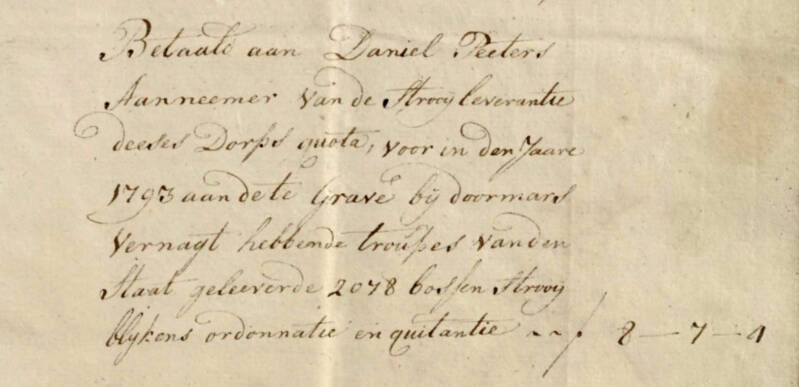 Betaald aan Daniel Peeters
Aanneemer van de Strooÿ leverantie
deeses Dorps quota, voor in den Jaare
1793 aan de te Grave bÿ doormars
vernagt hebbende troupes van den
Staat geleeverde 2078 bossen Strooÿ
blÿkens ordonnatie en quitantie ~ ~ f 8 — 7 — 4